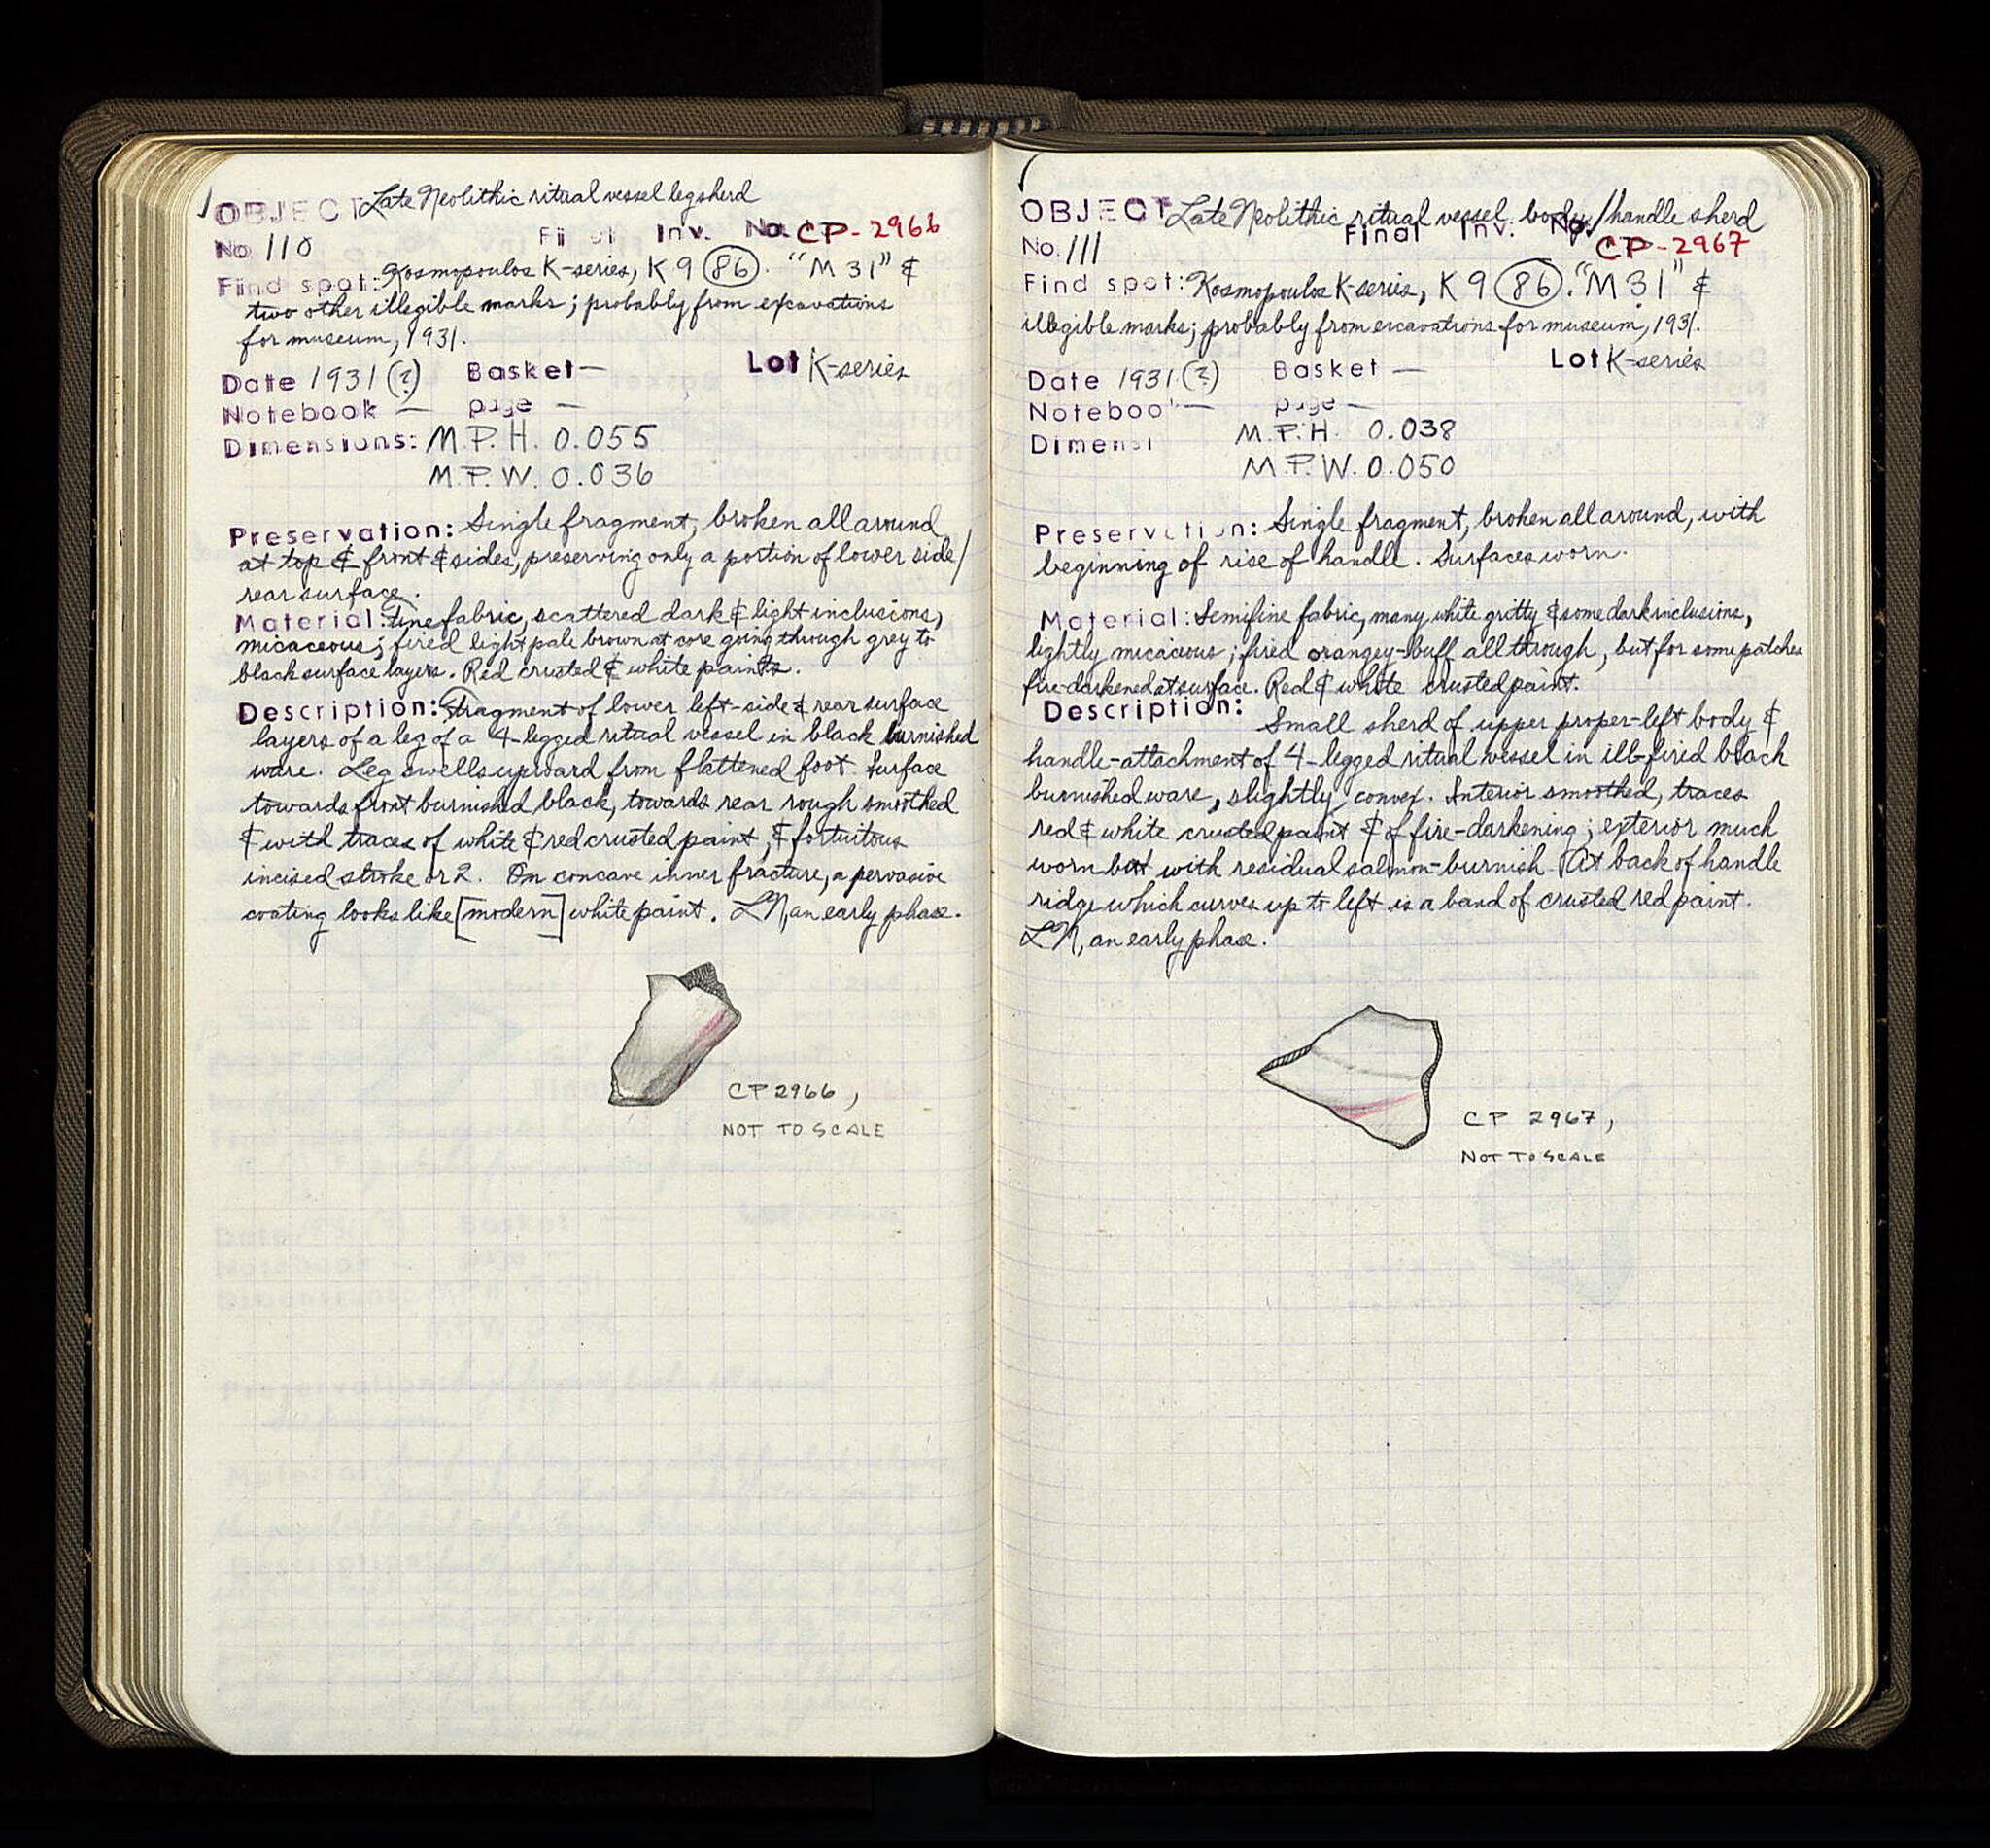 OBJECT Late Neolithic ritual vessel leg sherd
No. 110 Final Inv. No. CP-2966
Find spot: Kosmopoulos K-series, K 9 (86). "M 31" &
two other illegible marks; probably from excavations
for museum, 1931.
Date 1931 (?) Basket — Lot K-series
Notebook — page —
Dimensions: M.P.H. 0.055
M.P.W. 0.036
Preservation: Single fragment, broken all around
at top & front & sides, preserving only a portion of lower side/
rear surface.
Material: Fine fabric, scattered dark & light inclusions,
micaceous; fired light pale brown at core going through grey to
black surface layers. Red crusted & white paints.
Description: Fragment of lower left-side & rear surface
layers of a leg of a 4-legged ritual vessel in black burnished
ware. Leg swells upward from flattened foot. Surface
towards front burnished black, towards rear rough smoothed
& with traces of white & red crusted paint, & fortuitous
incised stroke or 2. On concave inner fracture, a pervasive
coating looks like [modern] white paint. LN, an early phase.
CP 2966,
NOT TO SCALE
OBJECT Late Neolithic ritual vessel body/handle sherd
No. 111 Final Inv. No. CP-2967
Find spot: Kosmopoulos K-series, K 9 (86). "M 31" &
illegible marks; probably from excavations for museum, 1931.
Date 1931 (?) Basket — Lot K-series
Notebook — page —
Dimensi M.P.H. 0.038
M.P.W. 0.050
Preservation: Single fragment, broken all around, with
beginning of rise of handle. Surfaces worn.
Material: Semifine fabric, many white gritty & some dark inclusions,
lightly micaceous; fired orangey-buff all through, but for some patches
fire-darkened at surface. Red & white crusted paint.
Description:
Small sherd of upper proper-left body &
handle-attachment of 4-legged ritual vessel in ill-fired black
burnished ware, slightly convex. Interior smoothed, traces
red & white crusted paint & of fire-darkening; exterior much
worn but with residual salmon-burnish. At back of handle
ridge which curves up to left is a band of crusted red paint.
LN, an early phase.
CP 2967,
NOT TO SCALE